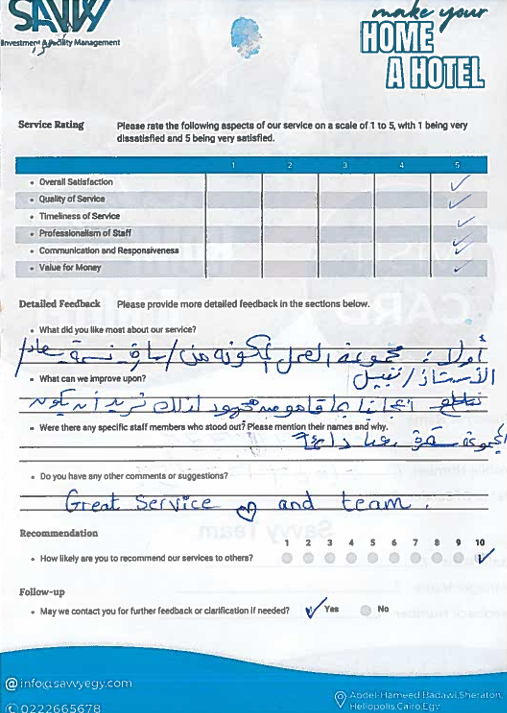 SAVVY
Investment & Facility Management
make your
HOME
A HOTEL
Service Rating
Please rate the following aspects of our service on a scale of 1 to 5, with 1 being very
dissatisfied and 5 being very satisfied.
1 2 3 4 5
• Overall Satisfaction
• Quality of Service
• Timeliness of Service
• Professionalism of Staff
• Communication and Responsiveness
• Value for Money
Detailed Feedback Please provide more detailed feedback in the sections below.
• What did you like most about our service?
أولا: مجموعة العمل المكونة من / سارة
• What can we improve upon?
الأستاذ / نبيل
قاموا به مجهود لذلك نريد أن يكون
• Were there any specific staff members who stood out? Please mention their names and why.
معنا
• Do you have any other comments or suggestions?
Great Service ♡ and team.
Recommendation
1 2 3 4 5 6 7 8 9 10
• How likely are you to recommend our services to others?
Follow-up
• May we contact you for further feedback or clarification if needed? Yes No
@ info@savvyegy.com
0222665678
Abdel-Hameed Badawi, Sheraton,
Heliopolis, Cairo, Egy